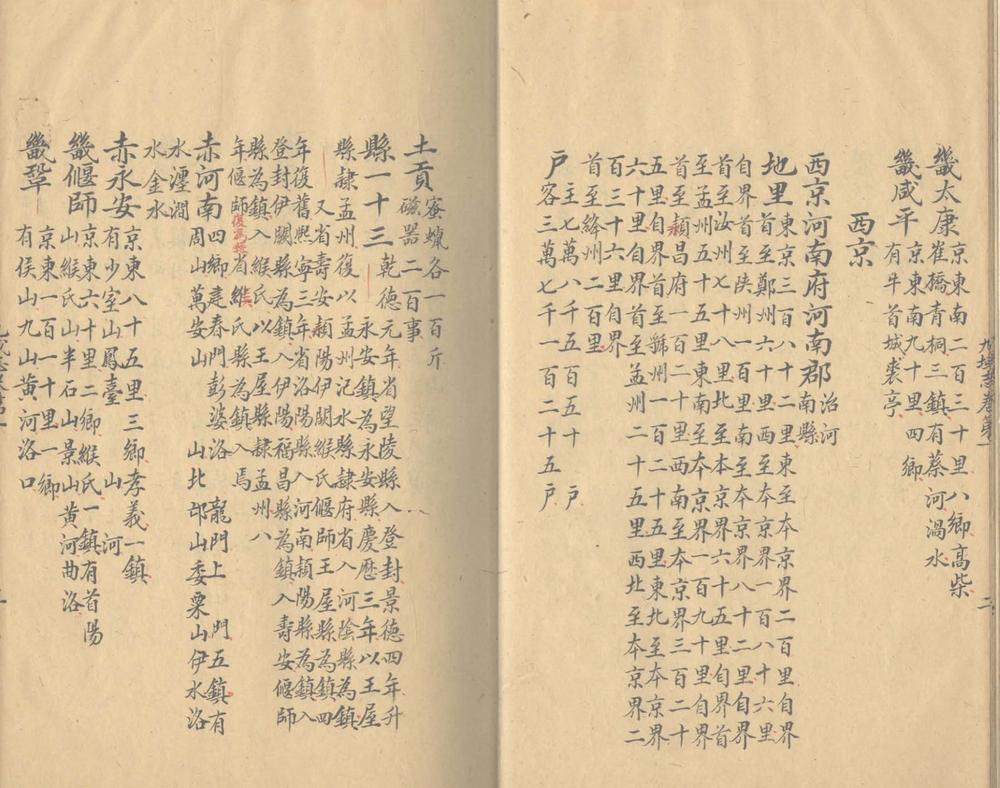 畿太康京東南二百三十里八鄉高柴
崔橋青桐三鎮有蔡河渦水
畿咸平京東南九十里四鄉
有牛首城裘亭
西京
西京河南府河南郡治河
南縣
地里東京三百八十里東至本京界二百里自界
首至鄭州六十里西至本京界一百八十六里
自界首至陝州一百里南至本京界八十二里自界
首至汝州七十八里北至本京界六十五里自界首
至孟州五十五里東南至本京界一百九十里自界
首至潁昌府一百二十里西南至本京界三百二十
五里自界首至虢州一百二十五里東北至本京界
六十里自界首至孟州二十五里西北至本京界二
百三十六里自界
首至絳州二百里
戶主七萬八千五百五十戶
客三萬七千一百二十五戶
土貢蜜蠟各一百斤
磁器二百事
縣一十三乾德元年省望陵縣入登封景德四年升
永安鎮為永安縣慶歷三年以王屋
縣隸孟州復以孟州汜水縣隸府省入河陰縣為鎮
又省壽安潁陽伊闕緱氏偃師王屋縣為鎮四
年復舊熙寧三年省洛陽縣入河南潁陽縣為鎮入
登封伊闕縣為鎮入伊陽福昌縣為鎮入壽安偃師
縣為鎮入緱氏以王屋縣隸孟州八
年偃師復為縣省緱氏縣為鎮入焉
赤河南四鄉建春門彭婆洛龍門上門五鎮有
周萬安山山北邙山委粟山伊水洛
水瀍澗
水金水
赤永安京東八十五里三鄉孝義一鎮
有少室山鳳臺山河
畿偃師京東六十里二鄉緱氏一鎮有首陽
山緱氏山半石山景山黃河曲洛
畿鞏京東一百一十里一鄉
有侯山九山黃河洛口